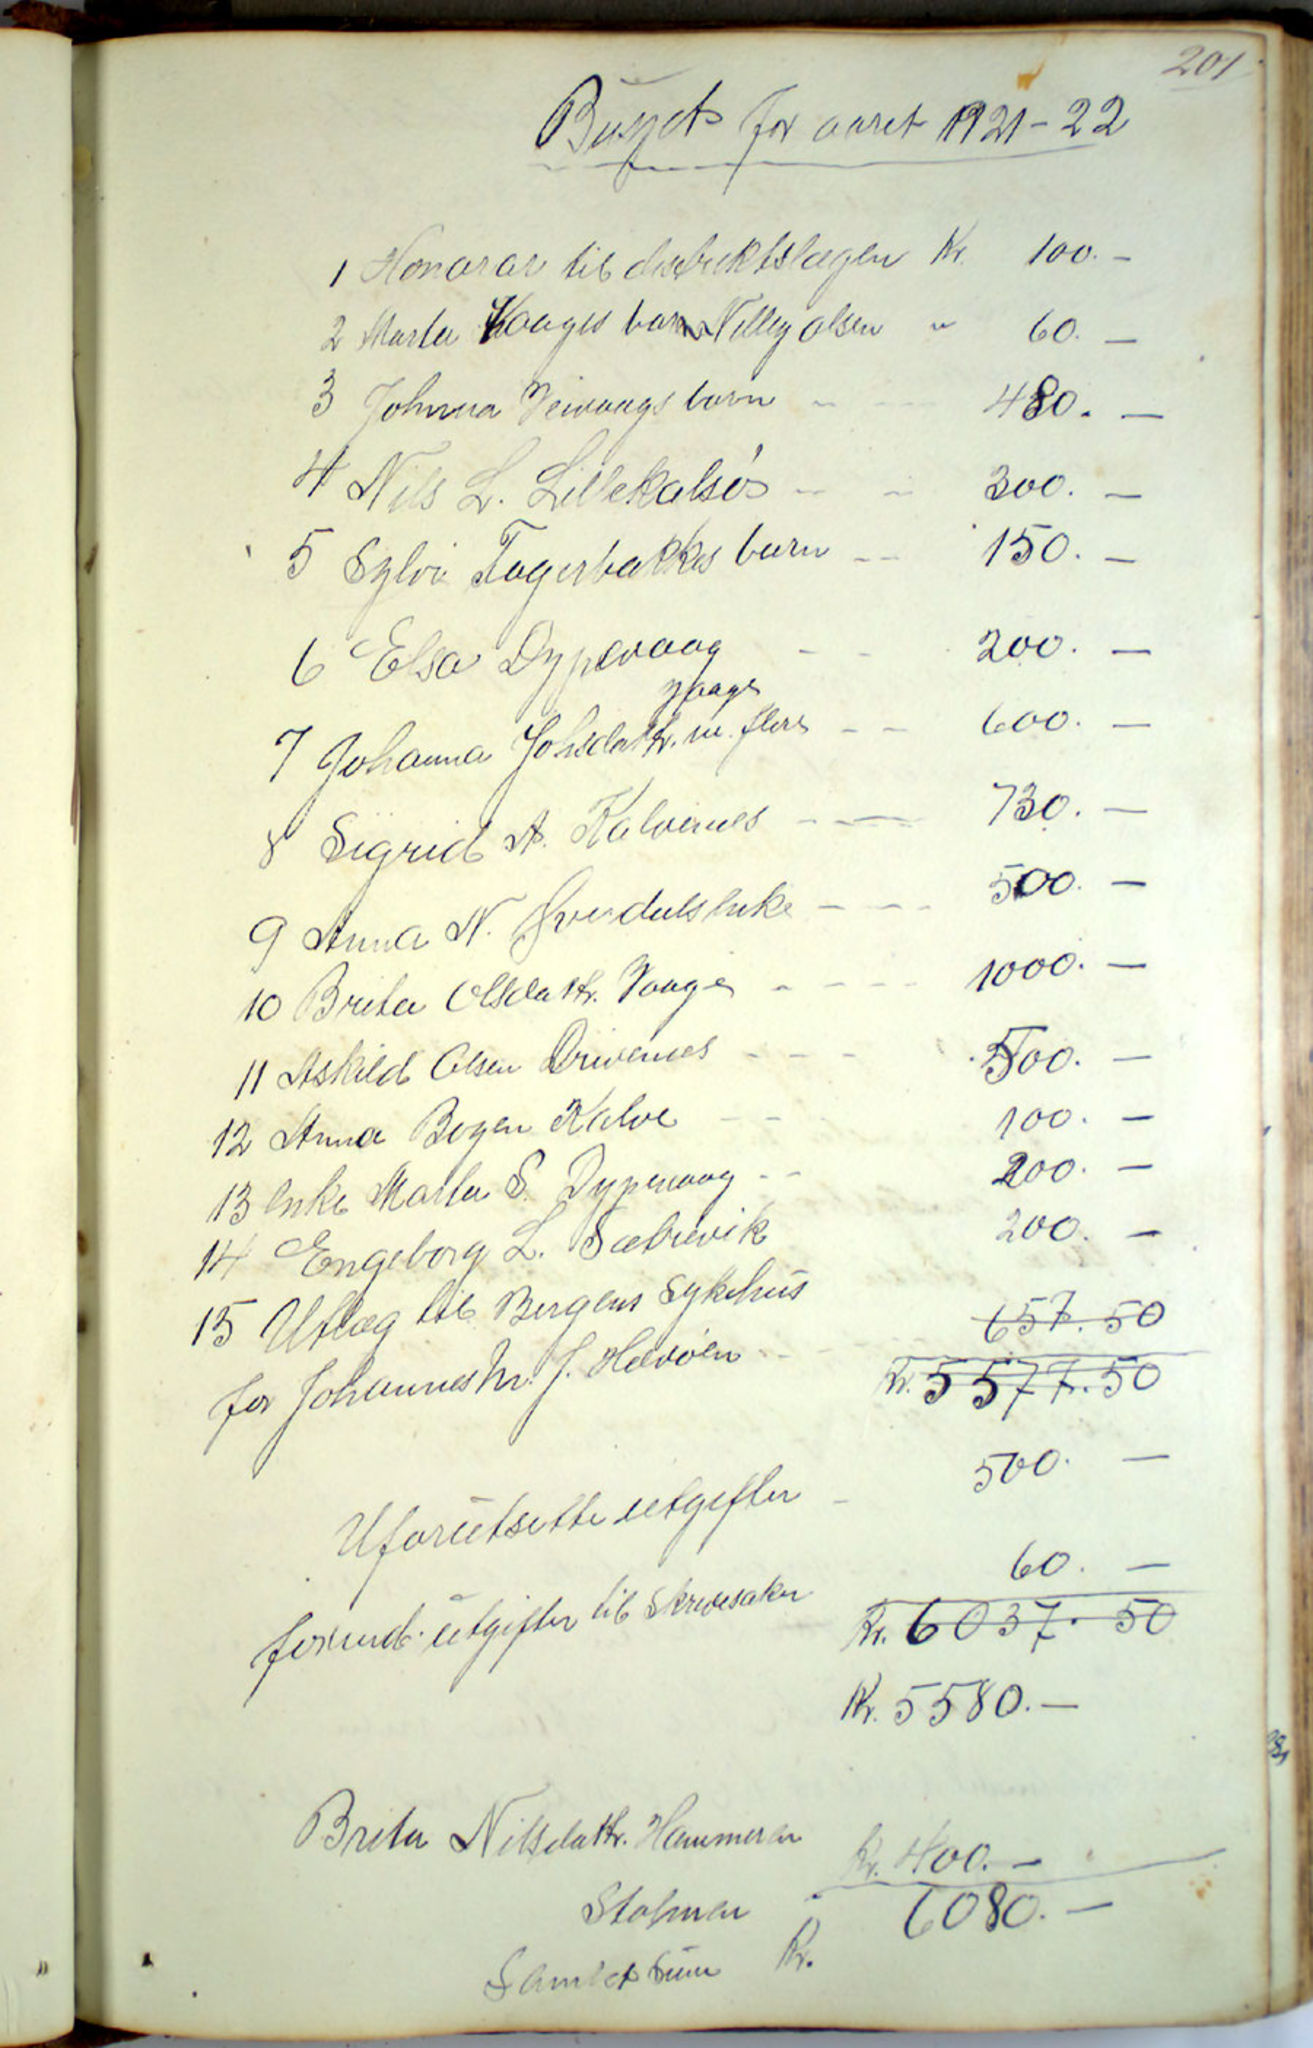 201
Budget for aaret 1921-22
1 Honorar til distriktslægen Kr. 100.-
2 Marta Vaages barn Nelly Olsen " 60.-
3 Johanna Veivaags barn 480.-
4 Nils L. Lillekalsøs 300.-
5 Sylvi Fagerbakkes barn 150.-
6 Elsa Dypevaag 200.-
Vaage
7 Johanna Johsdattr. m. flere 600.-
8 Sigrid A. Kalvenes 730.-
9 Anna N. enke 500.-
10 Brita Olsdattr. Vaage 1000.-
11 Askild Olsen Drivenes 500.-
12 Anna Bogen Kalve 100.-
13 enke Marta S. Dypevaag 200.-
14 Engeborg L. Sæbrevik 200.-
15 Utlæg til Bergens Sykehus
for Johannes M. J. Hevrøen 657.50
Kr. 5577.50
Uforutsette utgifter 500.-
forund. utgifter til Skrivesaker 60.-
Kr. 6037.50
Kr. 5580.-
Brita Nilsdattr. Hammeren
Stolmen Kr. 400.-
Samlet Sum Kr. 6080.-